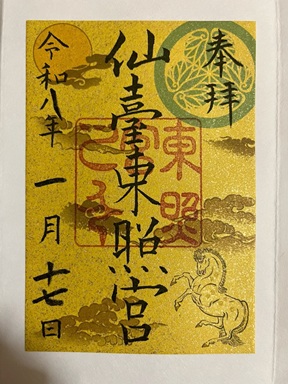 奉拝
東照
仙臺東照宮
令和八年 一月十七日